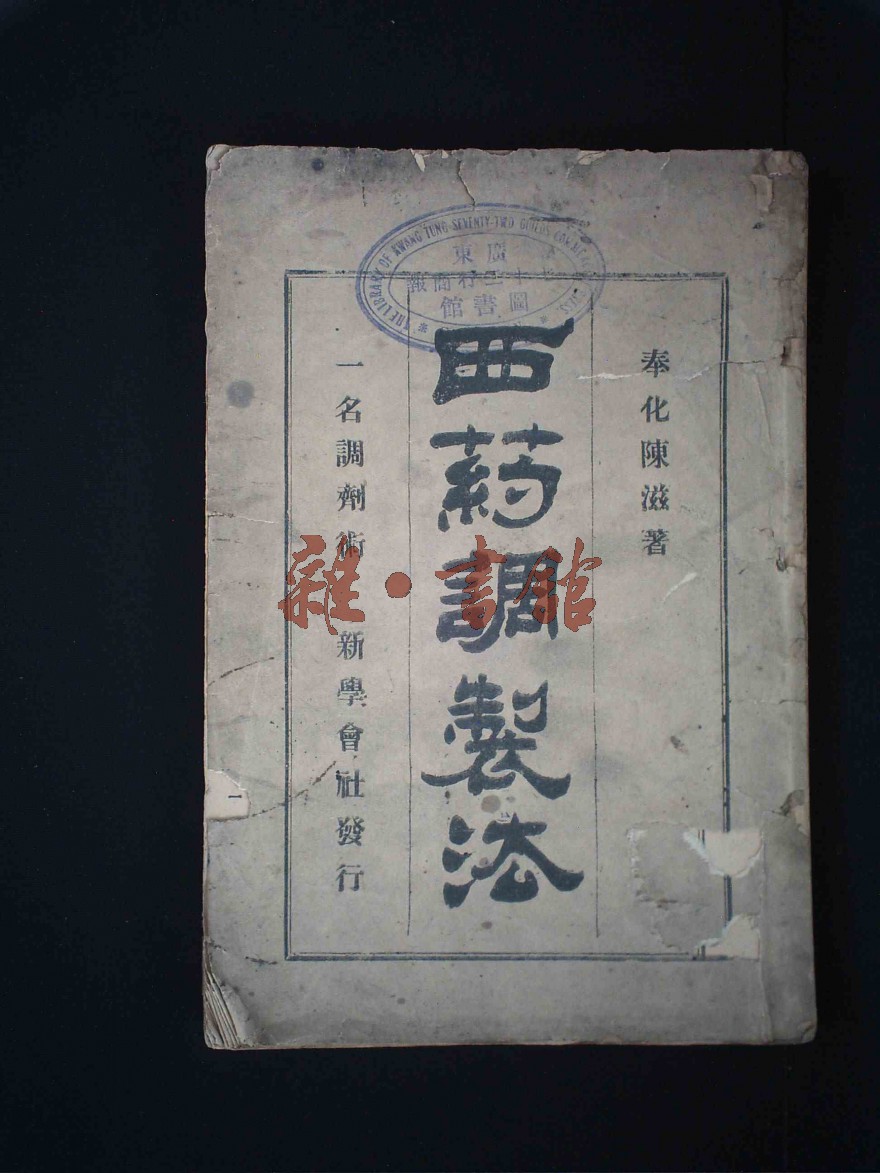 THE LIBRARY OF KWANG TUNG SEVENTY-TWO GUILDS
廣東
七十二行商報
圖書館
奉化陳滋著
西葯調製法
一名調劑術 新學會社發行
雜·書館
一